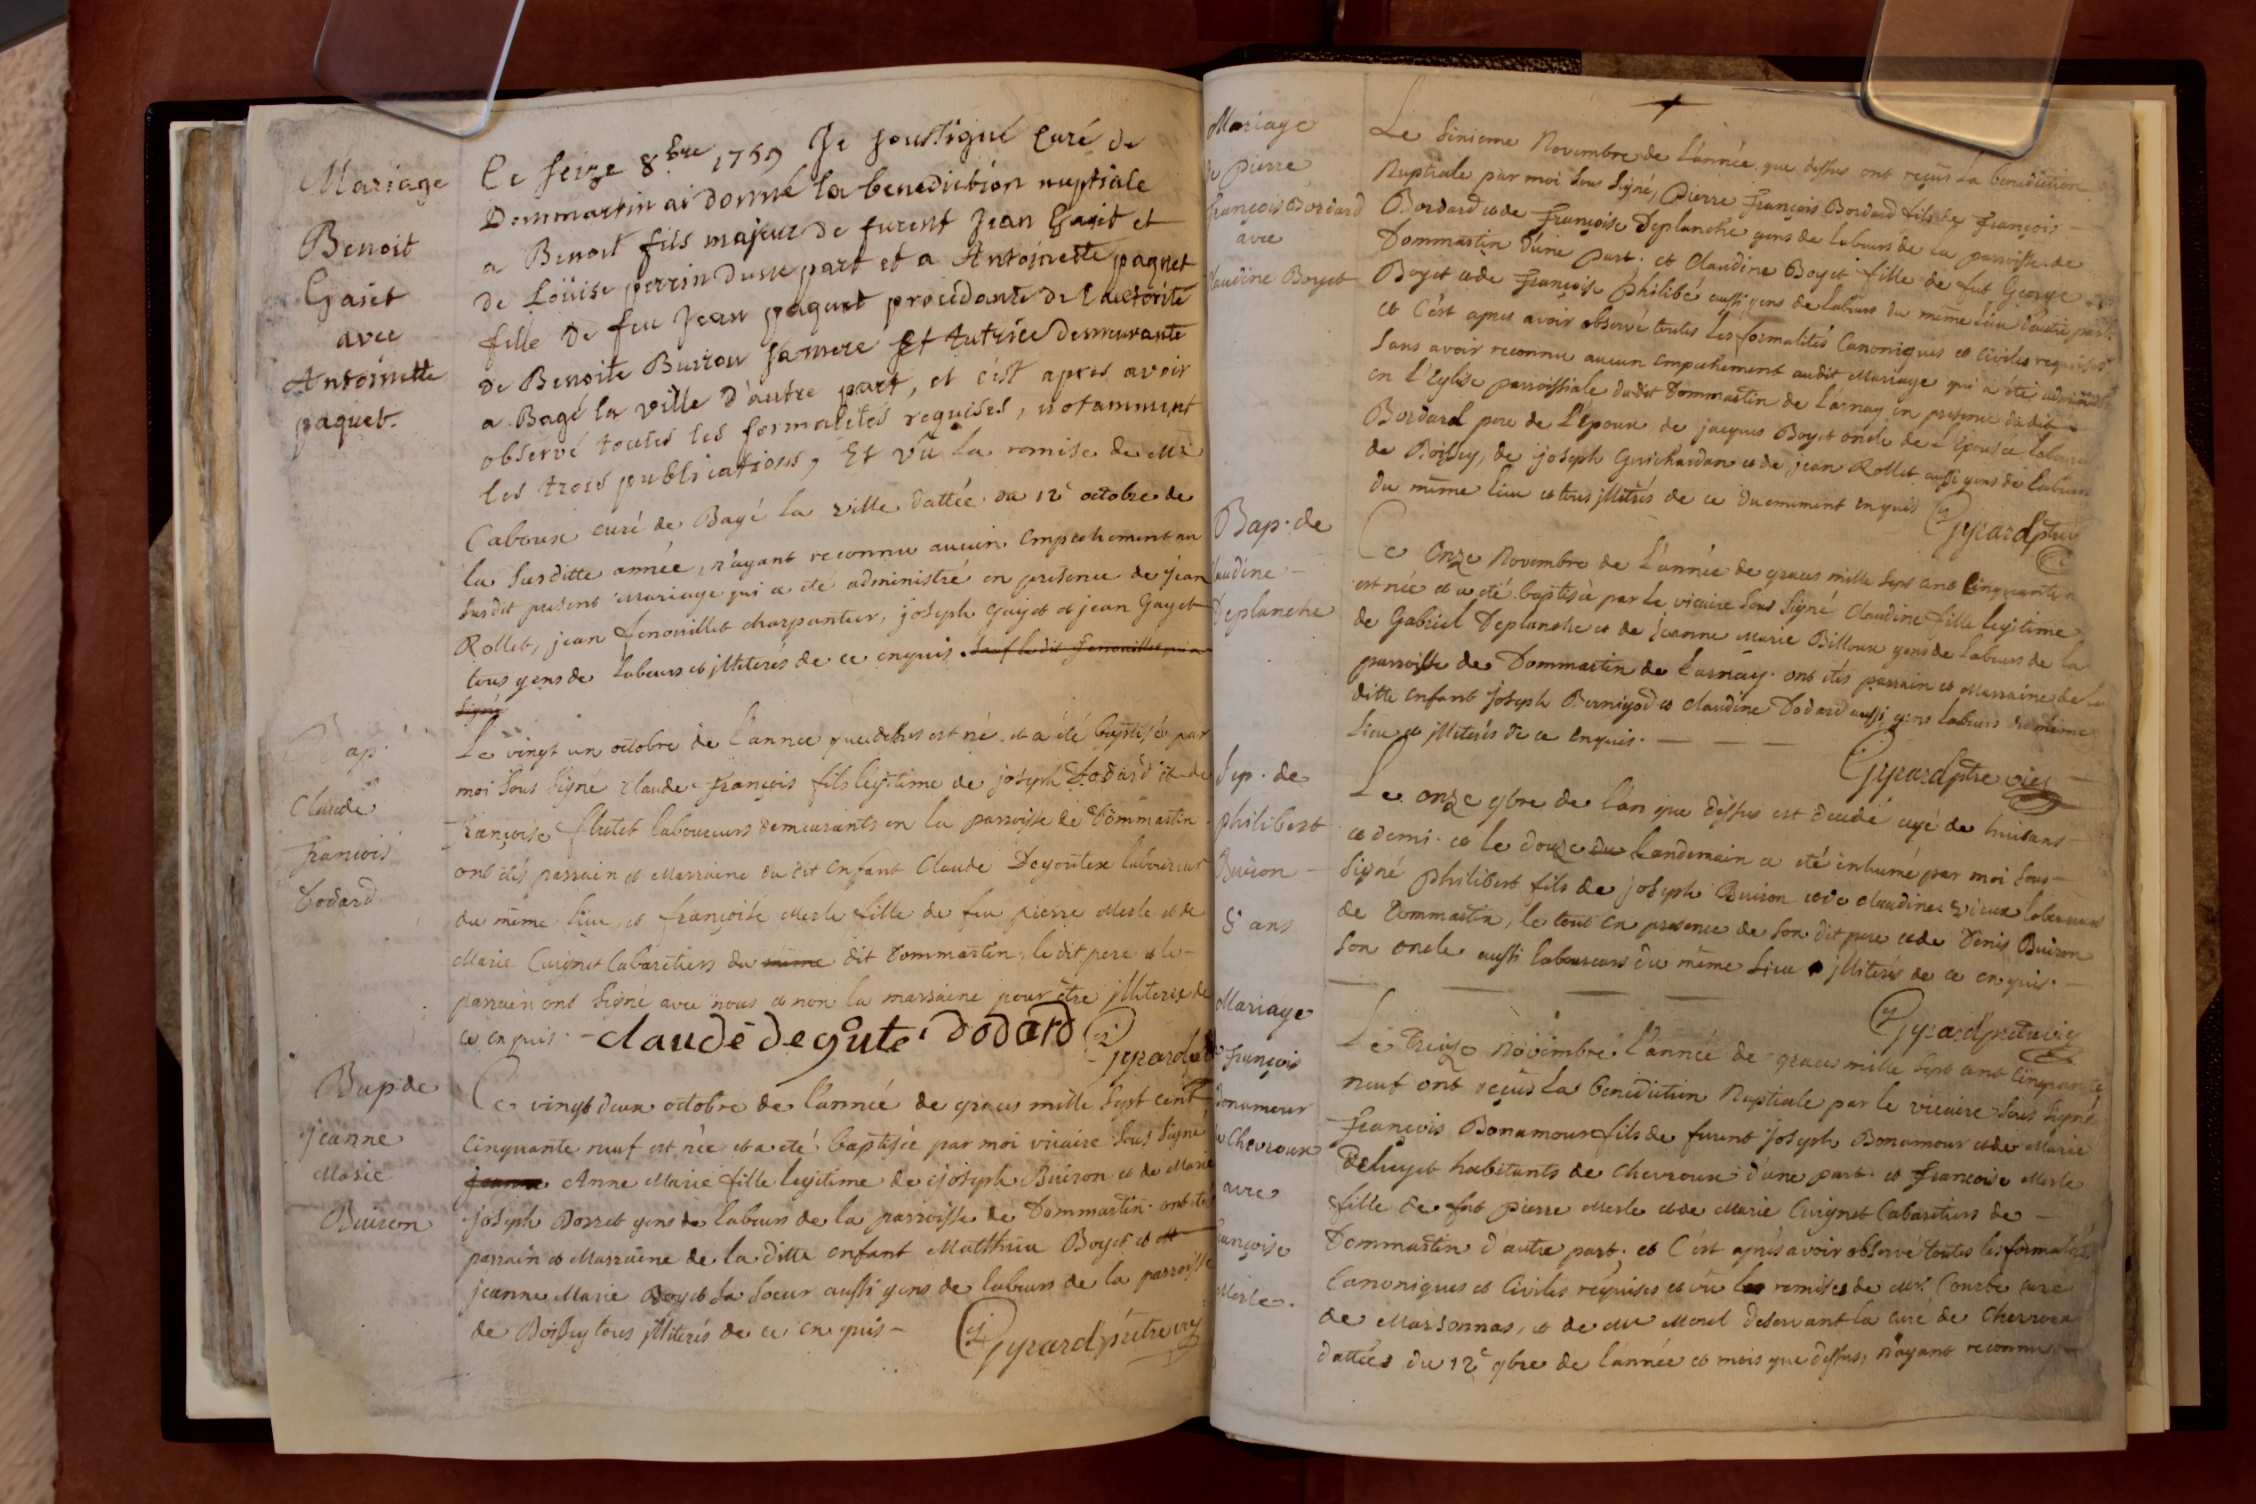 Mariage
Benoit
Gaiet
avec
Antoinette
paquet.
Le seize 8.bre 1759 Je soussigné Curé de
Dommartin ai donné la benediction nuptiale
a Benoit fils majeur de furent Jean Gaiet et
de Loüise perrin dune part et a Antoinette paquet
fille De feu Jean paquet procédante de l'autorité
de Benoite Buiron sa mere Et tutrice demeurante
a Bagé la ville d'autre part, et c'est apres avoir
observé toutes les formalités requises, notamment
les trois publications, Et vû la remise de Mr
Caboux curé de Bagé la ville dattée du 12e octobre de
la susditte année, n'ayant reconnu aucun Empechement au
susdit present Mariage qui a été administré en presence de jean
Rollet, jean fenouillet charpentier, joseph Gayet et jean Gayet
tous gens de Labeurs et jlliterés de ce enquis. sauf le dit fenouillet qui a
signé
Bap.
Claude
françois
Dodard
Le vingt un octobre de L'année que dessus est né et a été baptisé par
moi sous signé Claude françois fils legitime de joseph Dodard et de
françoise flutet laboureurs demeurants en la parroisse de Dommartin
ont étés parrain et Marraine du dit Enfant Claude Degoutex laboureur
du même lieu, et françoise Merle fille de feu pierre Merle et de
Marie Cuignet Cabaretiers du même dit Dommartin, le dit pere et le
parrain ont signé avec nous et non la marraine pour être jlliterée de
ce enquis. claude degute dodard Gyrard
Bap de
jeanne
Marie
Buiron
Ce vingt deux octobre de l'année de graces mille sept cent
Cinquante neuf est née et a eté baptisée par moi vicaire sous signé
jeanne Anne Marie fille legitime de joseph Buiron et de Marie
joseph Borret gens de labeurs de la parroisse de Dommartin. ont été
parrain et Marraine de la ditte enfant Matthieu Boyet et
jeanne Marie Boyet sa soeur aussi gens de labeurs de la parroisse
de Boissey tous jlliterés de ce en quis – Gyrard prêtre vic
Mariage
de pierre
françois Bordard
avec
Claudine Boyet
Le sixieme Novembre de L'année que dessus ont reçus La benediction
Nuptiale par moi sous signé, Pierre françois Bordard fils de françois
Bordard et de françoise Deplanche gens de labeurs de la parroisse de
Dommartin d'une part. et Claudine Boyet fille de fut George
Boyet et de françoise philibé aussi gens de labeurs du même lieu d'autre part.
et C'est apres avoir observé toutes les formalités Canoniques et Civiles requises
sans avoir reconnu aucun empechement audit Mariage qui a été administré
en L'Eglise parroissiale dudit Dommartin de Larnay en presence du dit
Bordard pere de L'epoux, de jacques Boyet oncle de L'épousée, laboureur
de Boissey, de joseph Guichardan et de jean Rollet aussi gens de labeurs
du même lieu et tous jlliterés de ce duement enquis Gyrard ptre
Bap. de
Claudine
Deplanche
Ce Onze Novembre de L'année de graces mille sept cent Cinquante
est née et a eté baptisée par le vicaire sous signé Claudine fille legitime
de Gabriel Deplanche et de jeanne Marie Billoux gens de labeurs de la
parroisse de Dommartin de Larnay. ont étés parrain et Marraine de la
ditte enfant joseph Bernigod et Claudine Dodard aussi gens labeurs du même
lieu et jlliterés de ce enquis. Gyrard ptre vic
Sep. de
philibert
Buiron
8 ans
Le onze 9bre de l'an que dessus est decédé agé de huit ans
et demi. et le douze du Landemain a eté inhumé par moi sous
signé philibert fils de joseph Buiron et de Claudine vieux laboureurs
de Dommartin, le tout en presence de son dit pere et de Denis Buiron
son oncle aussi laboureurs du même lieu jlliterés de ce enquis.
Gyrard ptre vic
Mariage
de françois
Bonamour
de Chevroux
avec
françoise
Merle.
Le Treize novembre l'année de graces mille sept cent Cinquante
neuf ont reçus La benediction Nuptiale par le vicaire sous signé
françois Bonamour fils de furent joseph Bonamour et de Marie
Deluyet habitants de Chevroux d'une part. et françoise Merle
fille de fut pierre Merle et de Marie Cuignet Cabaretiers de
Dommartin d'autre part. et C'est aprés avoir observé toutes les formalités
Canoniques et Civiles réquises et vû les remises de Mr. Courbe curé
de Marsonnas, et de Mr Morel deservant la cure de Chevroux
dattées du 12e 9bre de l'année et mois que dessus, n'ayant reconnu